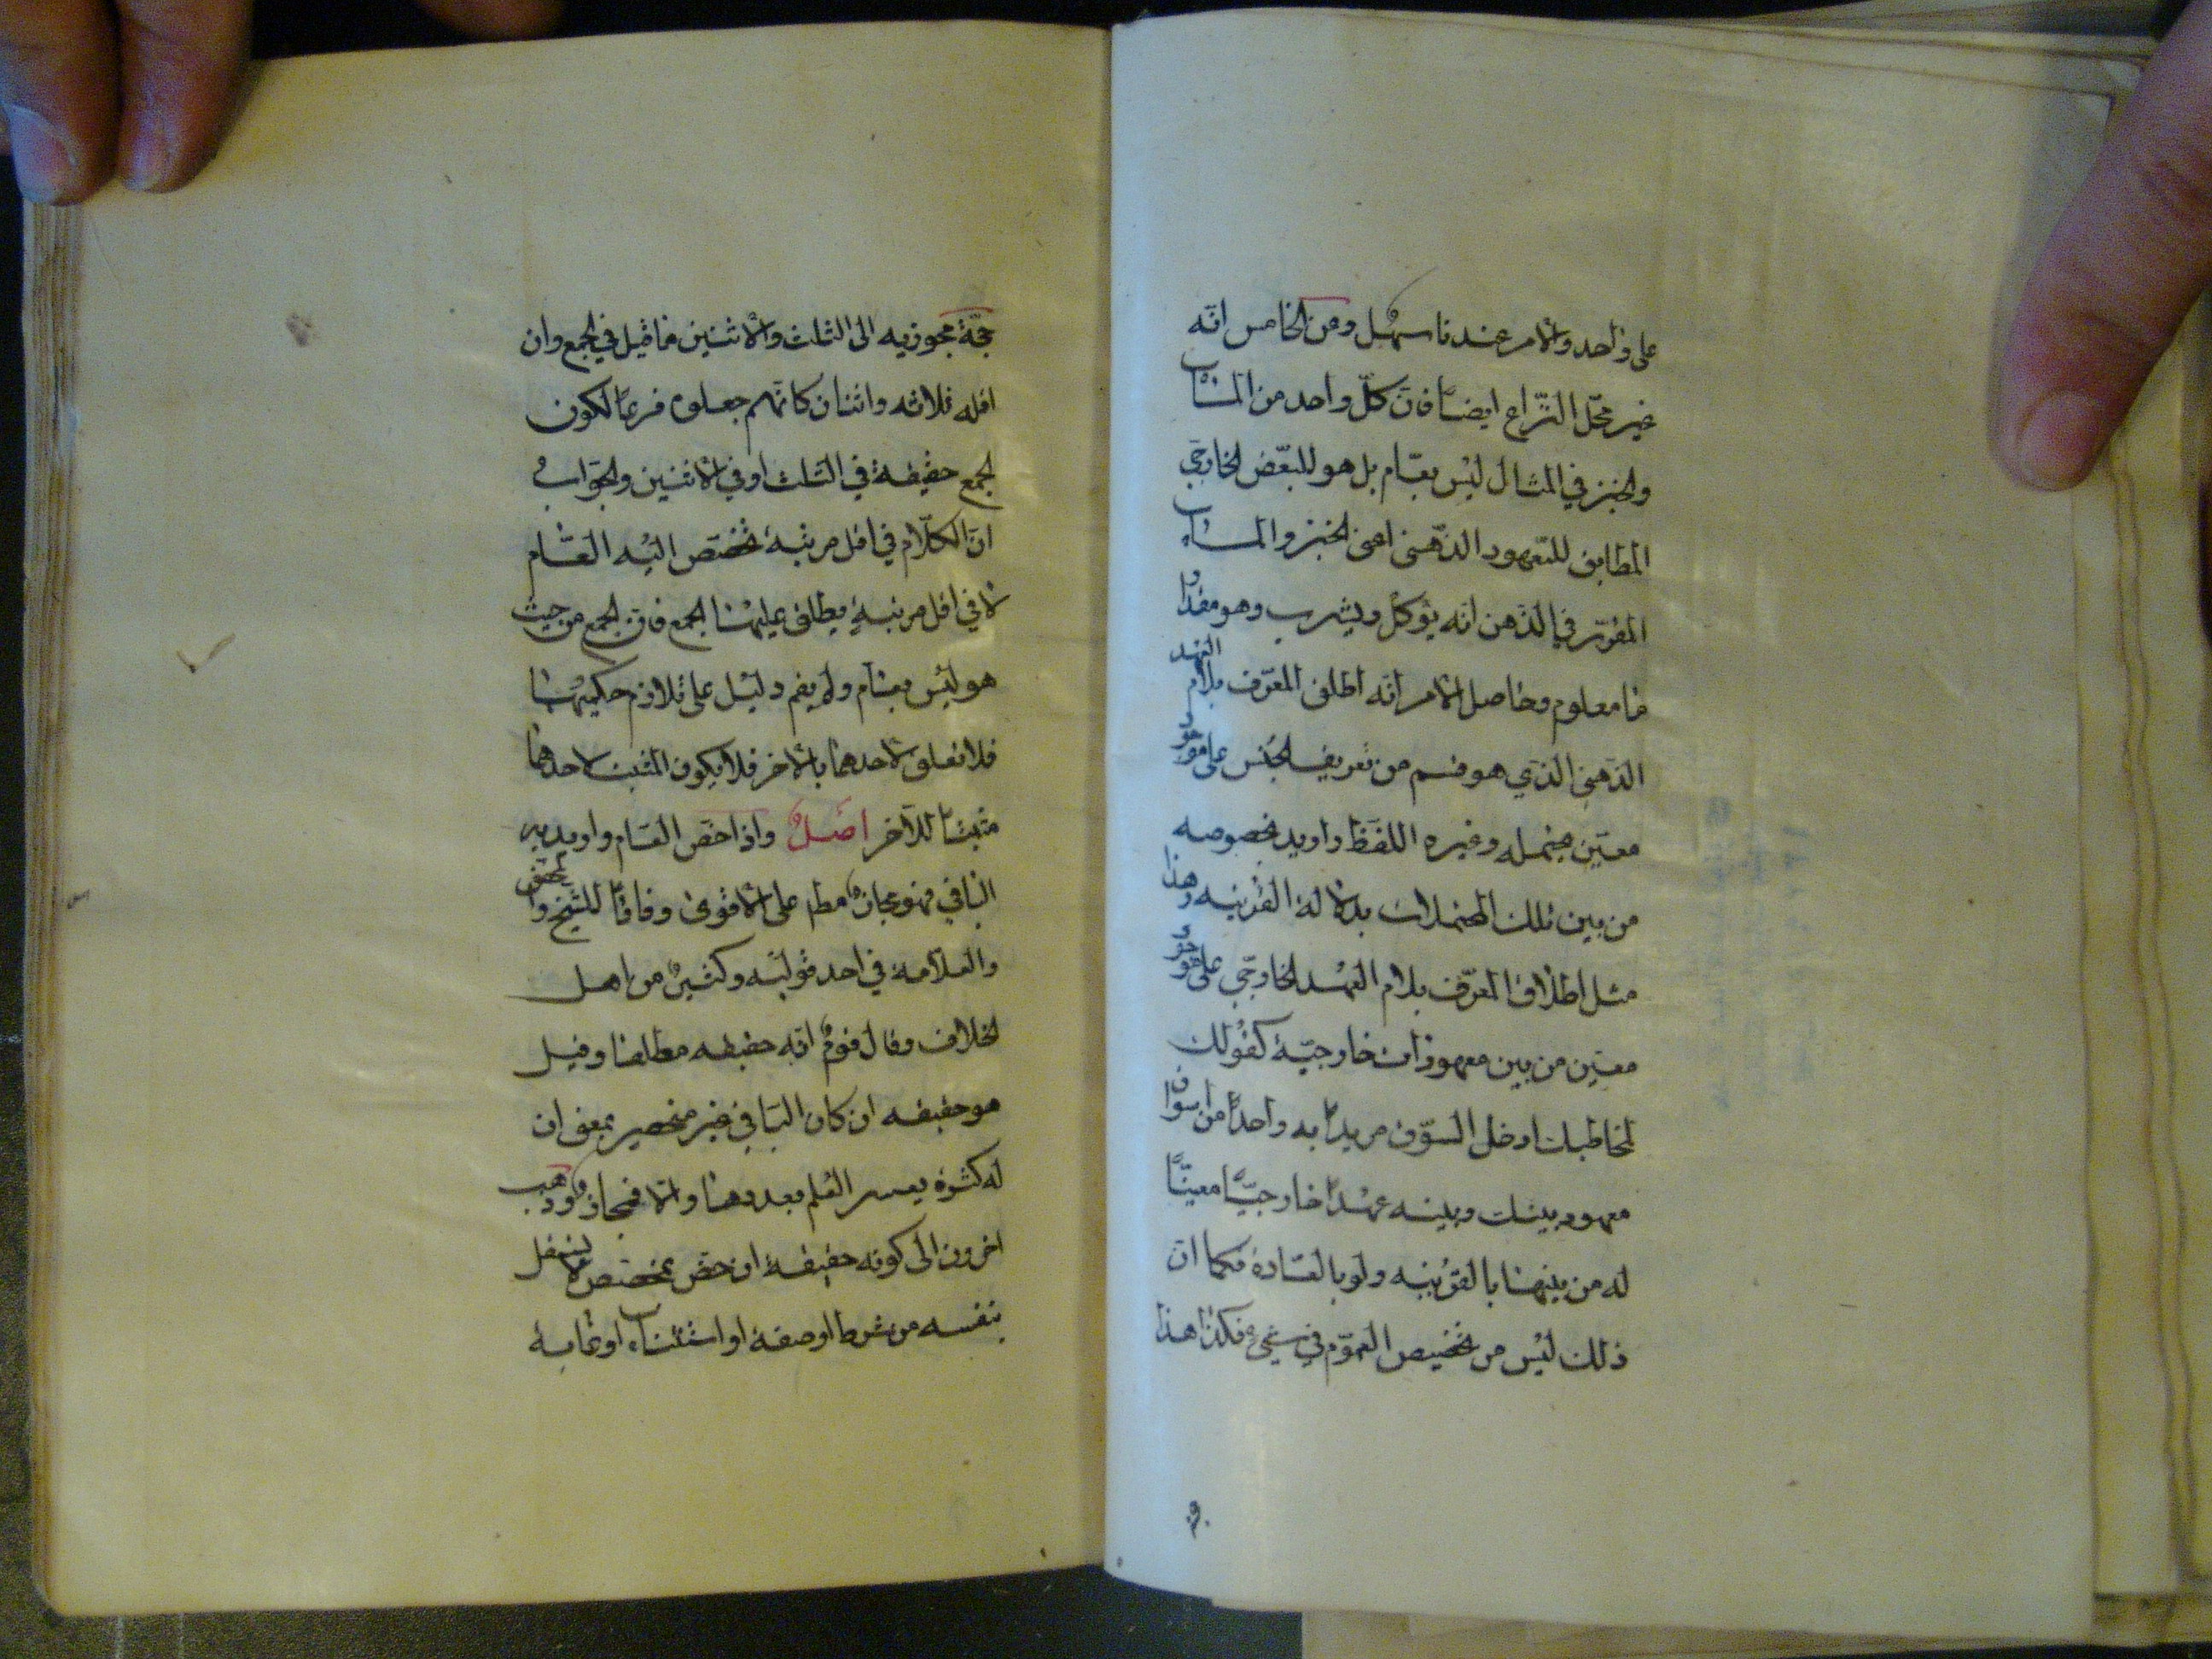 على واحد والأمر عندنا سهل ومن الخامس انّه
غير محلّ النّزاع ايضاً فانّ كلّ واحد من الماء
والخبز في المثال ليس بعامّ بل هو للبعض الخارجي
المطابق للمعهود الذّهني اعنى الخبز والماء
المقرّر في الذّهن انّه يؤكل ويشرب وهو مقدار
ما معلوم وحاصل الأمر انّه اطلق المعرّف بلام العهد
الذّهني الذي هو قسم من تعريف الجنس على موجود
معيّن يحتمله وغيره اللفظ واريد بخصوصه
من بين تلك المحتملات بدلالة القرينه وهذا
مثل اطلاق المعرّف بلام العهد الخارجي على موجود
معيّن من بين معهودات خارجيّة كقولك
لمخاطبك ادخل السّوق مريداً به واحداً من اسواق
معهود بينك وبينه عهداً خارجيّاً معيّناً
له من بينها بالقرينه ولو بالعادة فكما انّ
ذلك ليس من تخصيص العموم في شيء فكذا هذا
حجّة مجوزيه الى الثلث والأثنين ما قيل في الجمع وان
اقله ثلاثه واثنان كانّهم جعلوه فرعاً لكون
الجمع حقيقة في الثلث او في الأثنين والجواب
انّ الكلام في اقل مرتبة يختص اليه العام
لا في اقل مرتبة يطلق عليها الجمع فانّ الجمع من حيث
هو ليس بعام ولم يقم دليل على تلازم حكميهما
فلا تعلق لأحدهما بالأخر فلا يكون المثبت لاحدهما
مثبتاً للآخر اصل واذا خصّ العام واريد به
الباقي فهو مجاز مطم على الأقوى وفاقاً للشيخ والمحقق
والعلاّمة في احد قوليه وكثير من اهل
الخلاف وقال قوم انّه حقيقه مطلقا وقيل
هو حقيقه ان كان الباقي غير منحصر بمعنى ان
له كثرة يعسر العلم بعددها والّا فمجاز وذهب
اخرون الى كونه حقيقة ان خصّ بمخصّص لا يستقل
بنفسه من شرط او صفة او استثناء او غاية